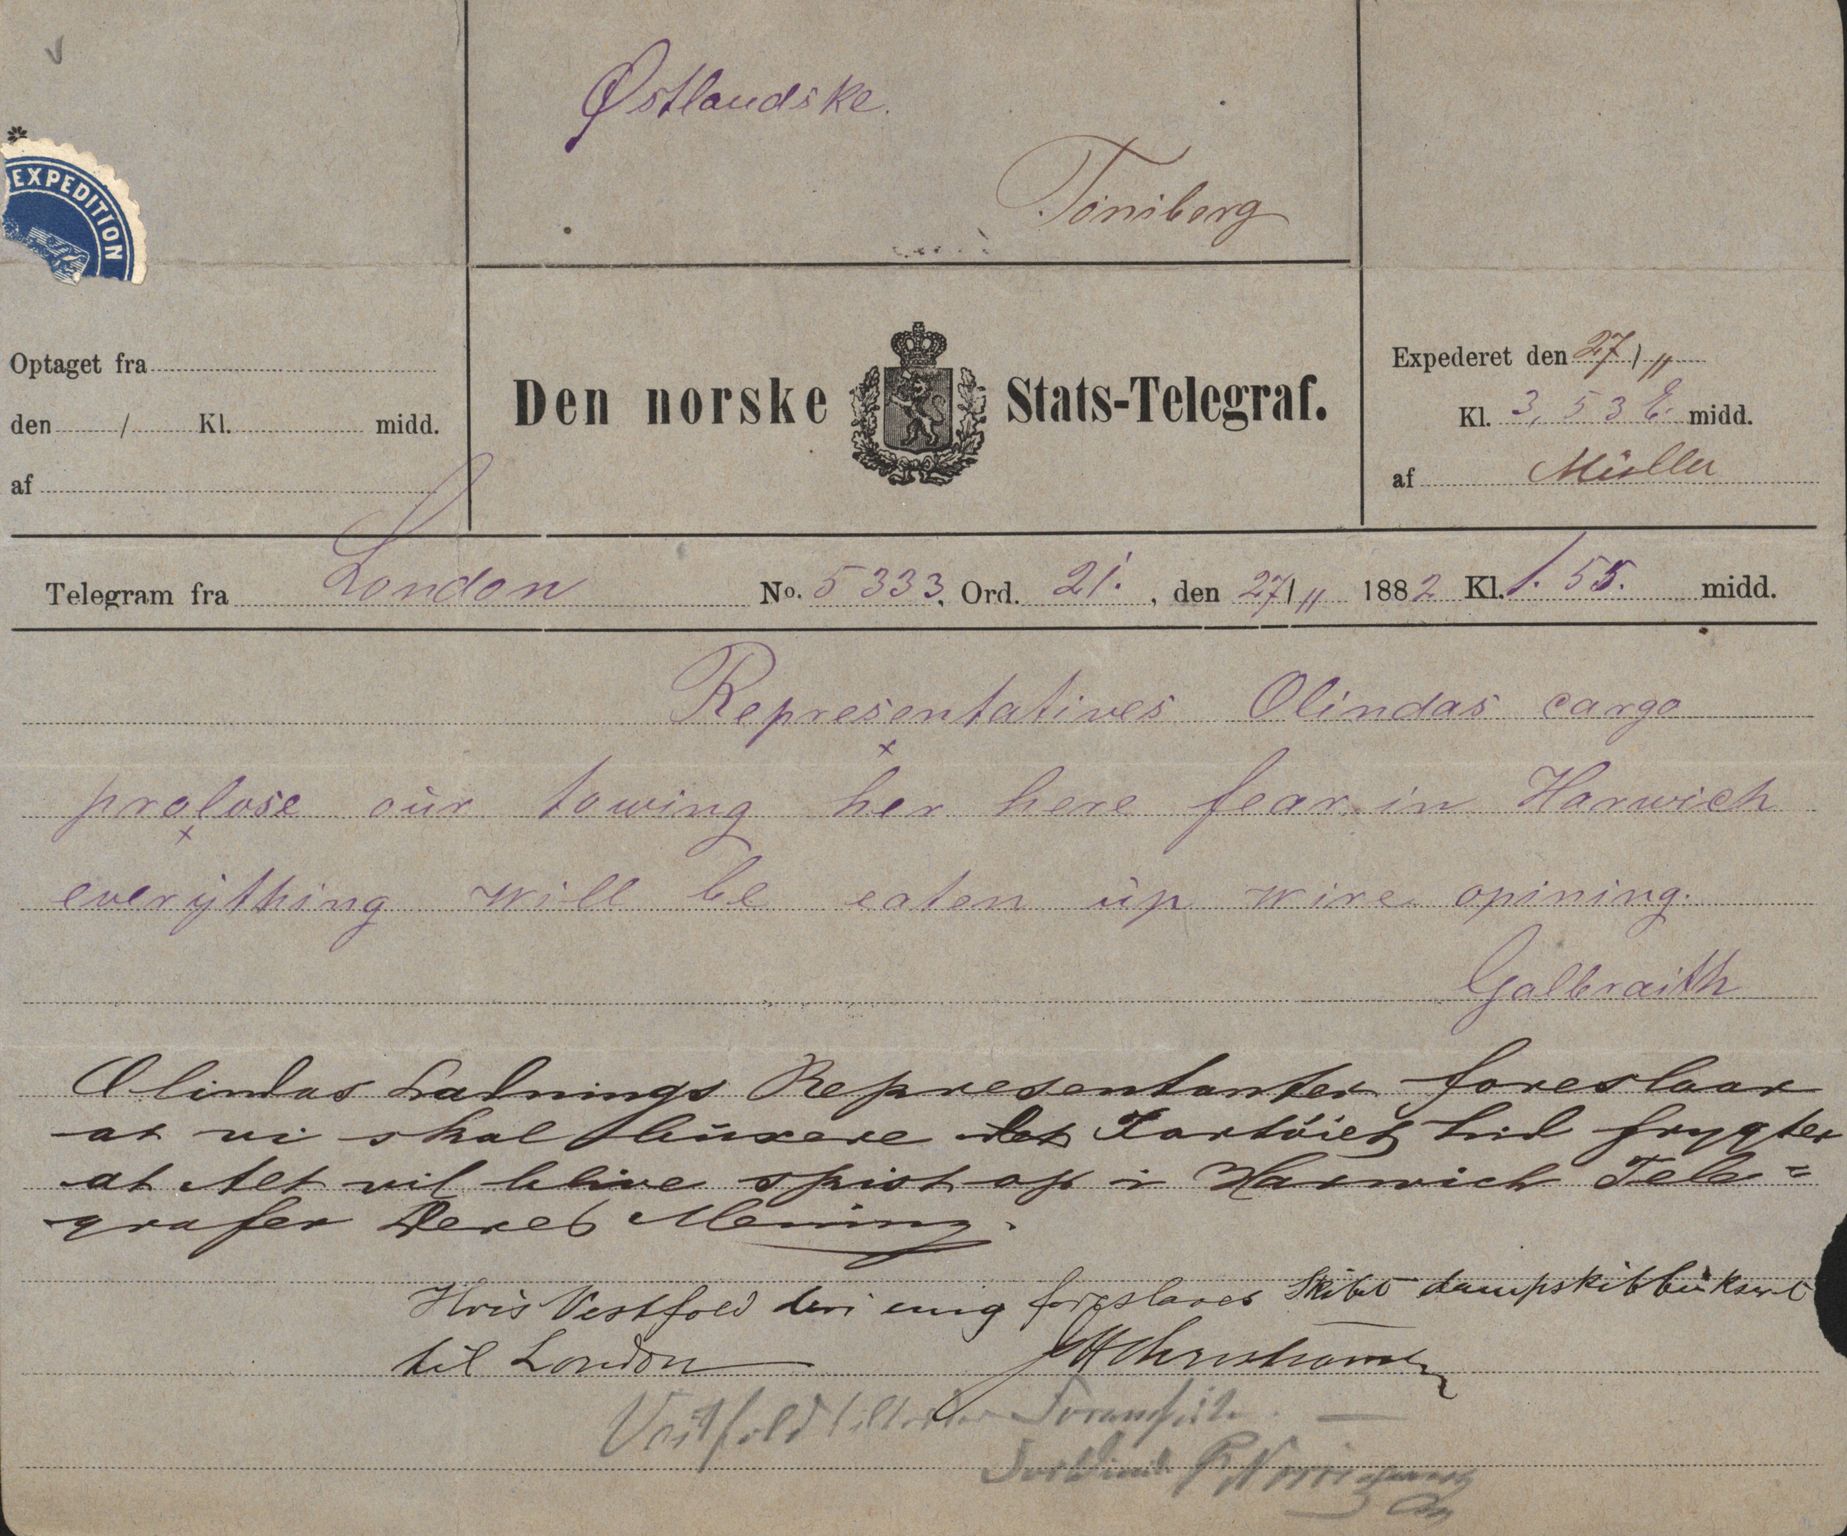 Østlandske.
Tönsberg
EXPEDITION
Optaget fra
den / Kl. midd.
af
Den norske Stats-Telegraf.
Expederet den 27/11
Kl. 3,53 E. midd.
af Müller
Telegram fra London No. 5333, Ord. 21., den 27/11 1882 Kl. 1.55. midd.
Representatives Olindas cargo
prolose our towing her here fear in Harwich
everything will be eaten up wire opining.
Galbraith
Olindas Ladnings Representanter foreslaar
at vi skal buxere det Fartöiet hid frygter
at Alt vil blive spist op i Harwich Tele=
grafer Deres Mening.
Hvis Vestfold deri enig foreslaaes Skibet dampskibbuksert
til London
Vestfold tiltræder